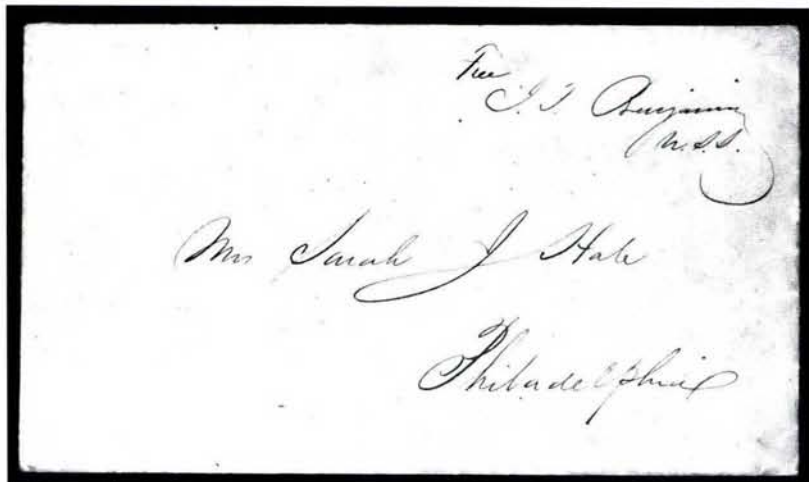 Free
J. P. Benjamin
U.S.S.
Mrs Sarah J Hale
Philadelphia